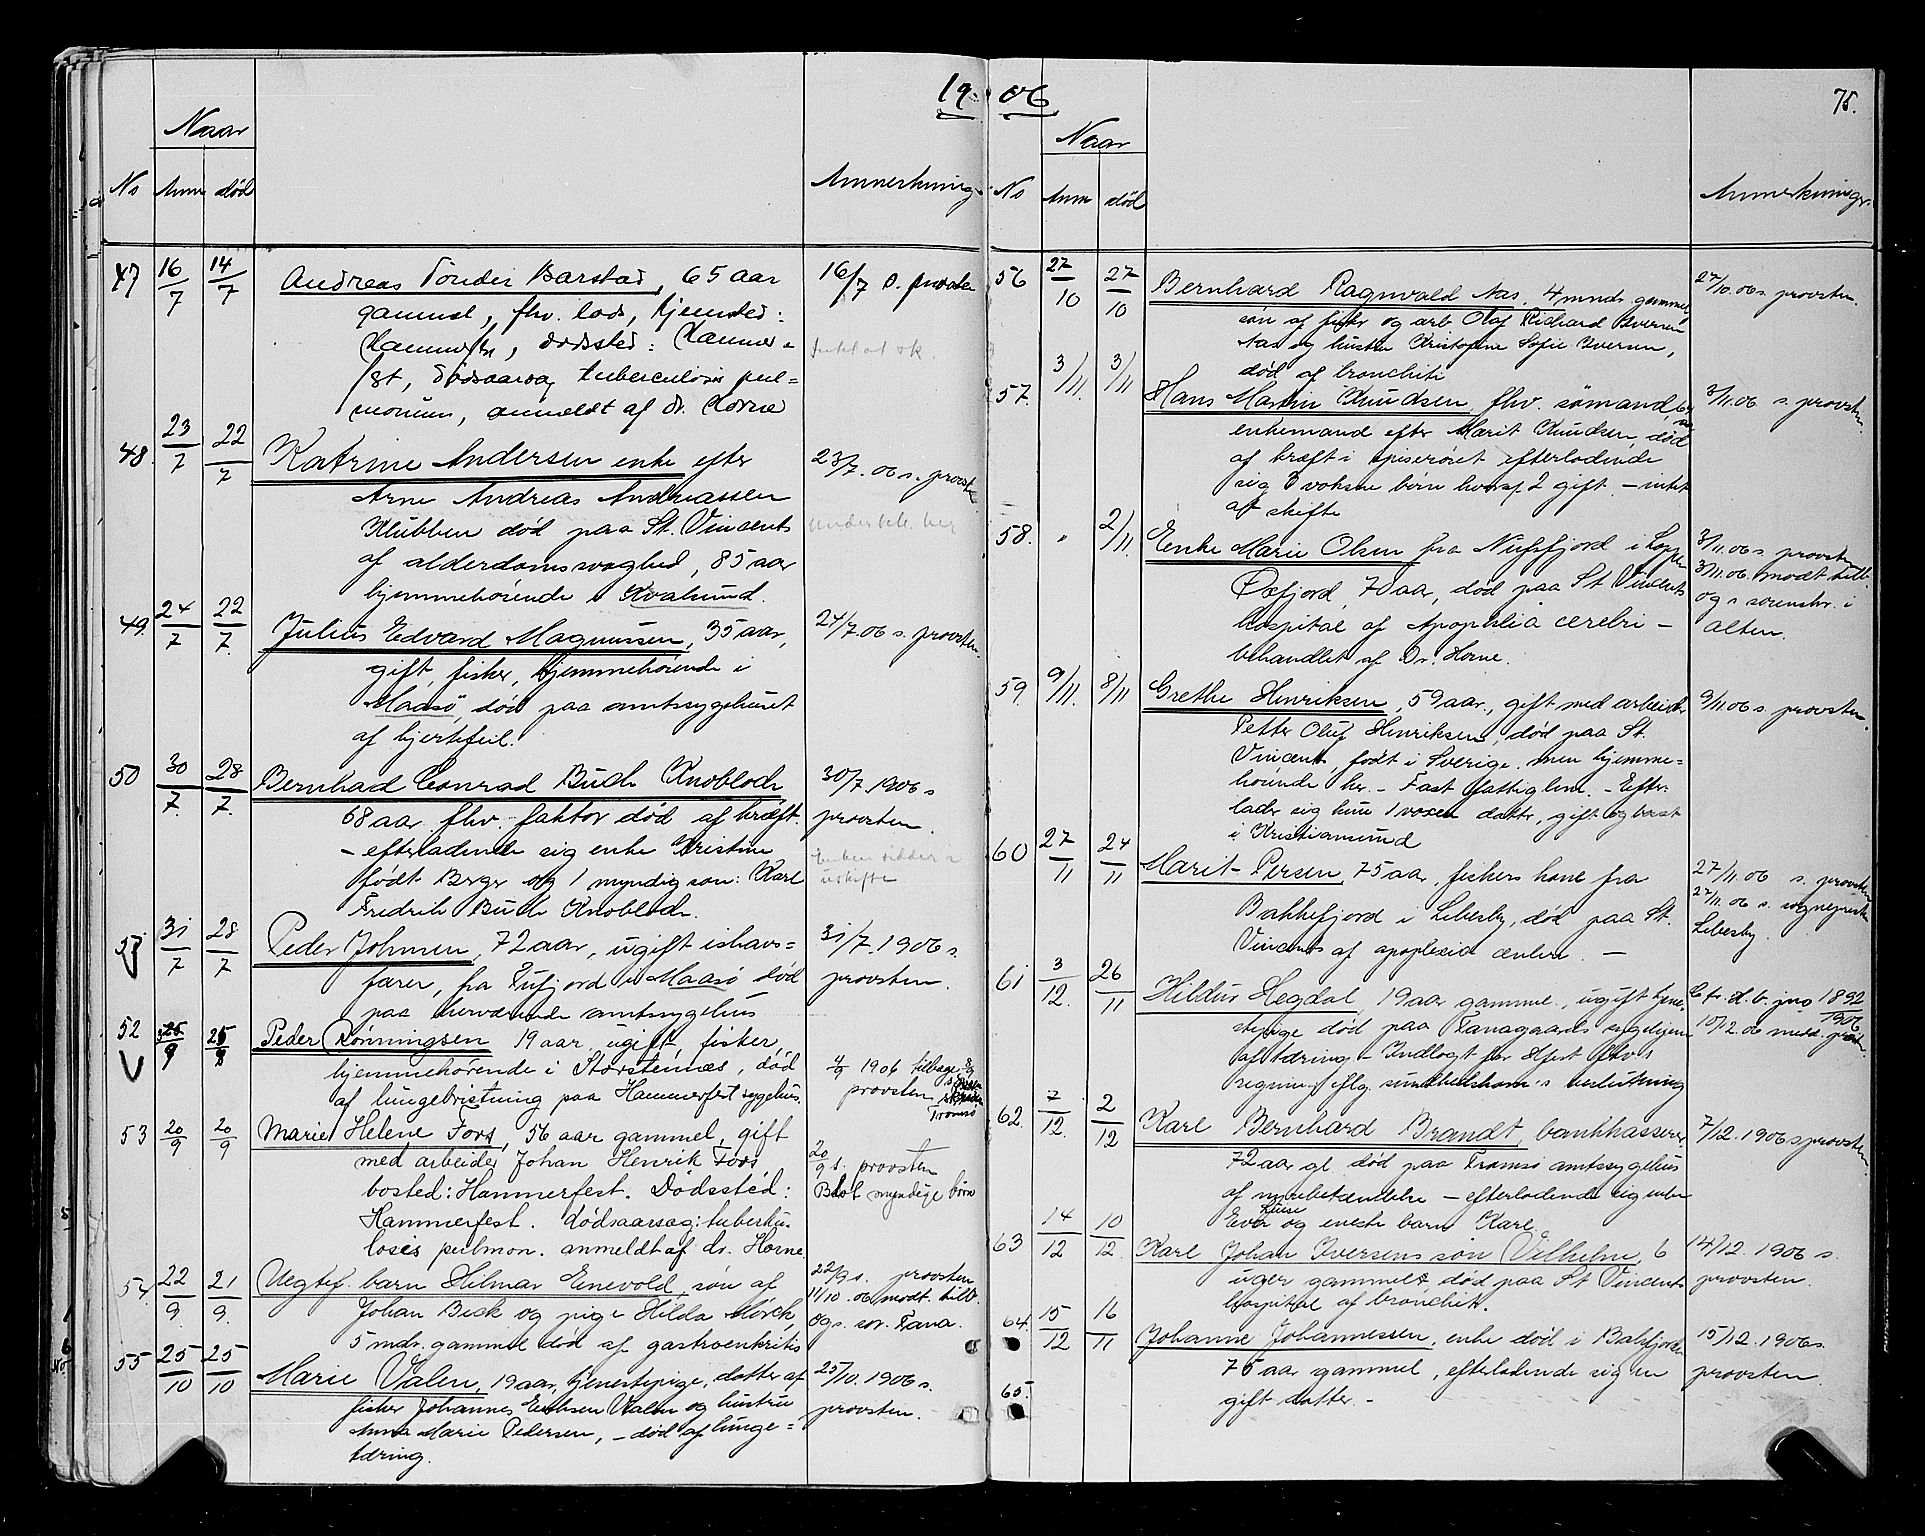 19 06
75.
Naar
No Anm død Anmerkning
47 16/7 14/7 Andreas Tonder Barstad, 65 aar 16/7 s. provsten
gammel, fhv. lods, hjemsted:
Hammerfest, dødssted: Hammer=
fst, dødsaarsag tuberculosis pul=
monum, anmeldt af dr. Horne
48. 23/7 22/7 Katrine Andersen enke efter 23/7.06 s. provsten
Arne Andreas Andreassen
Klubben død paa St. Vincents
af alderdomssvaghed, 85 aar
hjemmehørende i Kvalsund.
49. 24/7 22/7. Julius Edvard Magnussen, 35 aar, 24/7.06 s. provsten.
gift, fisker, hjemmehørende i
Maasø, død paa amtssygehuset
af hjertefeil.
50 30/7. 28/7. Bernhad Conrad Buch Knobloch 30/7 1906 s
68 aar fhv. faktor død af kræft. provsten.
– efterladende sig enke Kristine
født Berger og 1 myndig søn: Karl
Fredrik Buch Knobloch.
51 31/7 28/7 Peder Johnsen, 72 aar, ugift ishavs= 31/7.1906 s.
farer, fra Tufjord i Maasø død provsten.
paa herværende amtssygehus
52 9 9 Peder Rønningsen 19 aar, ugift, fisker,
hjemmehørende i Storstennes, død 4/9 1906 tilbage
af lungebetændelse paa Hammerfest sygehus. provsten
Tromsø
53 20/9 20/9 Marie Helene Fors, 56 aar gammel, gift 20/9 s. provsten
med arbeider Johan Henrik Fors, Blot myndige børn
bosted: Hammerfest. Dødssted:
Hammerfest. dødsaarsag: tuberku-
losis pulmon. anmeldt af dr. Horne
54. 22/9. 21/9. Uegtef. barn Hilmar Enevold, søn af 22/9 s. provsten
Johan Beck og pige Hilda Mørch, 11/10.06 modt. tilb.
5 mdr. gammel død af gastroenteritis og s. sor. Tana.
55 25/10 25/10 Marie Valen, 19 aar, tjenestepige, datter af 25/10.1906 s.
fisker Johannes Eriksen Valen og hustru provsten.
Anna Marie Pedersen, – død af lunge=
tæring.
Naar
No Anm død Anmerkninger
56 27/10 27/10 Bernhard Ragnvald Aas, 4 mnds gammel, 27/10.06 s. provsten.
søn af fisker og arb Olaf Richard Iversen
Aas og hustru Kristofine Sofie Iversen,
død af bronchit
57. 3/11. 3/11 Hans Martin Knudsen, fhv. sømand 3/11.06 s. provsten.
enkemand efter Marit Knudsen, død
af kræft i spiserøret efterladende
sig 3 voksne børn hvoraf 2 gift. – intet
at skifte
58. " 2/11. Enke Marie Olsen fra Nufsfjord i Loppen 3/11.06 s. provsten
Øxfjord, 70 aar, død paa St Vincents 3/11.06. modt tilb.
hospital af Apoplexia cerebri – og s sorenskr. i
behandlet af Dr. Horne. Alten.
59. 9/11. 8/11 Grethe Henriksen, 59 aar, gift med arbeider 9/11 06 s. provsten
Petter Oluf Henriksen, død paa St.
Vincent, født i Sverige men hjemme=
hørende her. – Fast fattiglem. – Efter-
lader sig kun 1 voxen datter, gift og bosat
i Kristiansund
60 27/11 24/11 Marit Persen, 75 aar, fiskers kone fra 27/11.06 s. provsten
Bakkefjord i Lebesby, død paa St. 27/11.06 s. sogneprest
Vincents af apoplexia cerebri. – Lebesby.
61 3/12. 26/11 Hildur Hegdal 19 aar gammel, ugift tjene- 1892/1906
stepige død paa Fanagaards sygehjem 10/12.06
af tæring – Indlagt for
regning iflg. sundhedskom's beslutning
62. 7/12. 2/12 Karl Bernhard Brandt, bankkasserer 7/12.1906 s provsten
72 aar gl. død paa Tromsø amtssygehus
af nyrebetændelse – efterladende sig enke
og eneste barn Karl.
63 14/12 10/12. Karl Johan Iversens søn Vilhelm, 6 14/12.1906 s.
uger gammel død paa St Vincents provsten.
hospital af bronchit.
64. 15/12 16/11 Johanne Johannessen, enke død i Balsfjorden 15/12.1906 s.
75 aar gammel, efterladende sig en provsten.
65. gift datter. –